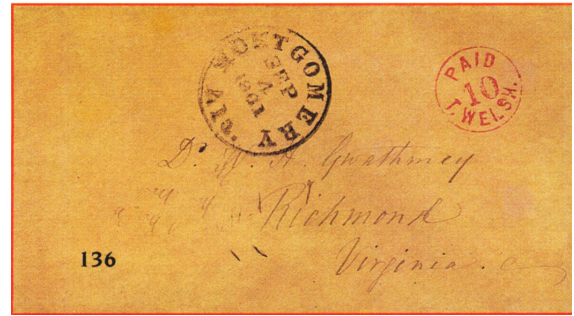 MONTGOMERY Ala.
SEP
4
1861
PAID
10
T. WELSH.
Dr. W. H. Gwathmey
Richmond
Virginia.
136